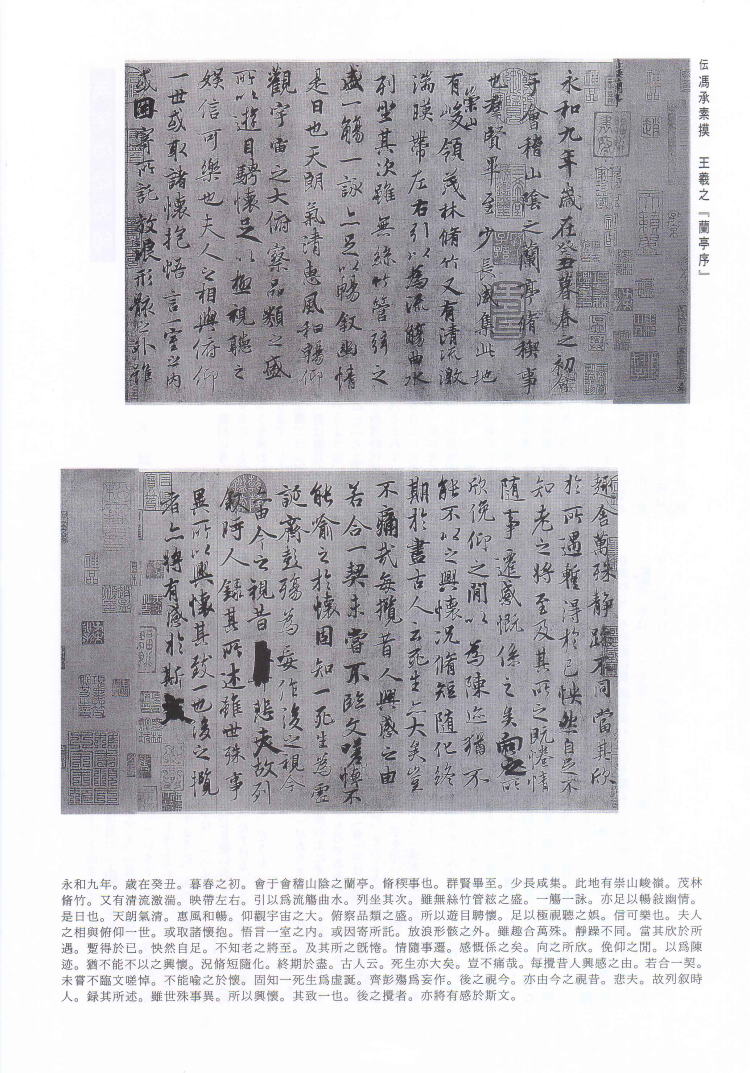 伝馮承素摸　王羲之『蘭亭序』
永和九年歲在癸丑暮春之初會
于會稽山陰之蘭亭脩稧事
也羣賢畢至少長咸集此地
有崇山峻領茂林脩竹又有清流激
湍暎帶左右引以為流觴曲水
列坐其次雖無絲竹管弦之
盛一觴一詠亦足以暢敘幽情
是日也天朗氣清惠風和暢仰
觀宇宙之大俯察品類之盛
所以遊目騁懷足以極視聽之
娛信可樂也夫人之相與俯仰
一世或取諸懷抱悟言一室之內
或因寄所託放浪形骸之外雖
趣舍萬殊靜躁不同當其欣
於所遇蹔得於己怏然自足不
知老之將至及其所之既惓情
隨事遷感慨係之矣向之所
欣俛仰之閒以為陳迹猶不
能不以之興懷況脩短隨化終
期於盡古人云死生亦大矣豈
不痛哉每攬昔人興感之由
若合一契未嘗不臨文嗟悼不
能喻之於懷固知一死生為虛
誕齊彭殤為妄作後之視今
亦由今之視昔悲夫故列
敘時人錄其所述雖世殊事
異所以興懷其致一也後之攬
者亦將有感於斯文
永和九年。歳在癸丑。暮春之初。會于會稽山陰之蘭亭。脩稧事也。群賢畢至。少長咸集。此地有崇山峻嶺。茂林
脩竹。又有清流激湍。映帶左右。引以爲流觴曲水。列坐其次。雖無絲竹管絃之盛。一觴一詠。亦足以暢敍幽情。
是日也。天朗氣清。惠風和暢。仰觀宇宙之大。俯察品類之盛。所以遊目騁懷。足以極視聽之娯。信可樂也。夫人
之相與俯仰一世。或取諸懷抱。悟言一室之内。或因寄所託。放浪形骸之外。雖趣合萬殊。靜躁不同。當其欣於所
遇。蹔得於已。怏然自足。不知老之將至。及其所之既惓。情隨事遷。感慨係之矣。向之所欣。俛仰之閒。以爲陳
迹。猶不能不以之興懷。況脩短隨化。終期於盡。古人云。死生亦大矣。豈不痛哉。毎攬昔人興感之由。若合一契。
未嘗不臨文嗟悼。不能喩之於懷。固知一死生爲虛誕。齊彭殤爲妄作。後之視今。亦由今之視昔。悲夫。故列叙時
人。録其所述。雖世殊事異。所以興懷。其致一也。後之攬者。亦將有感於斯文。